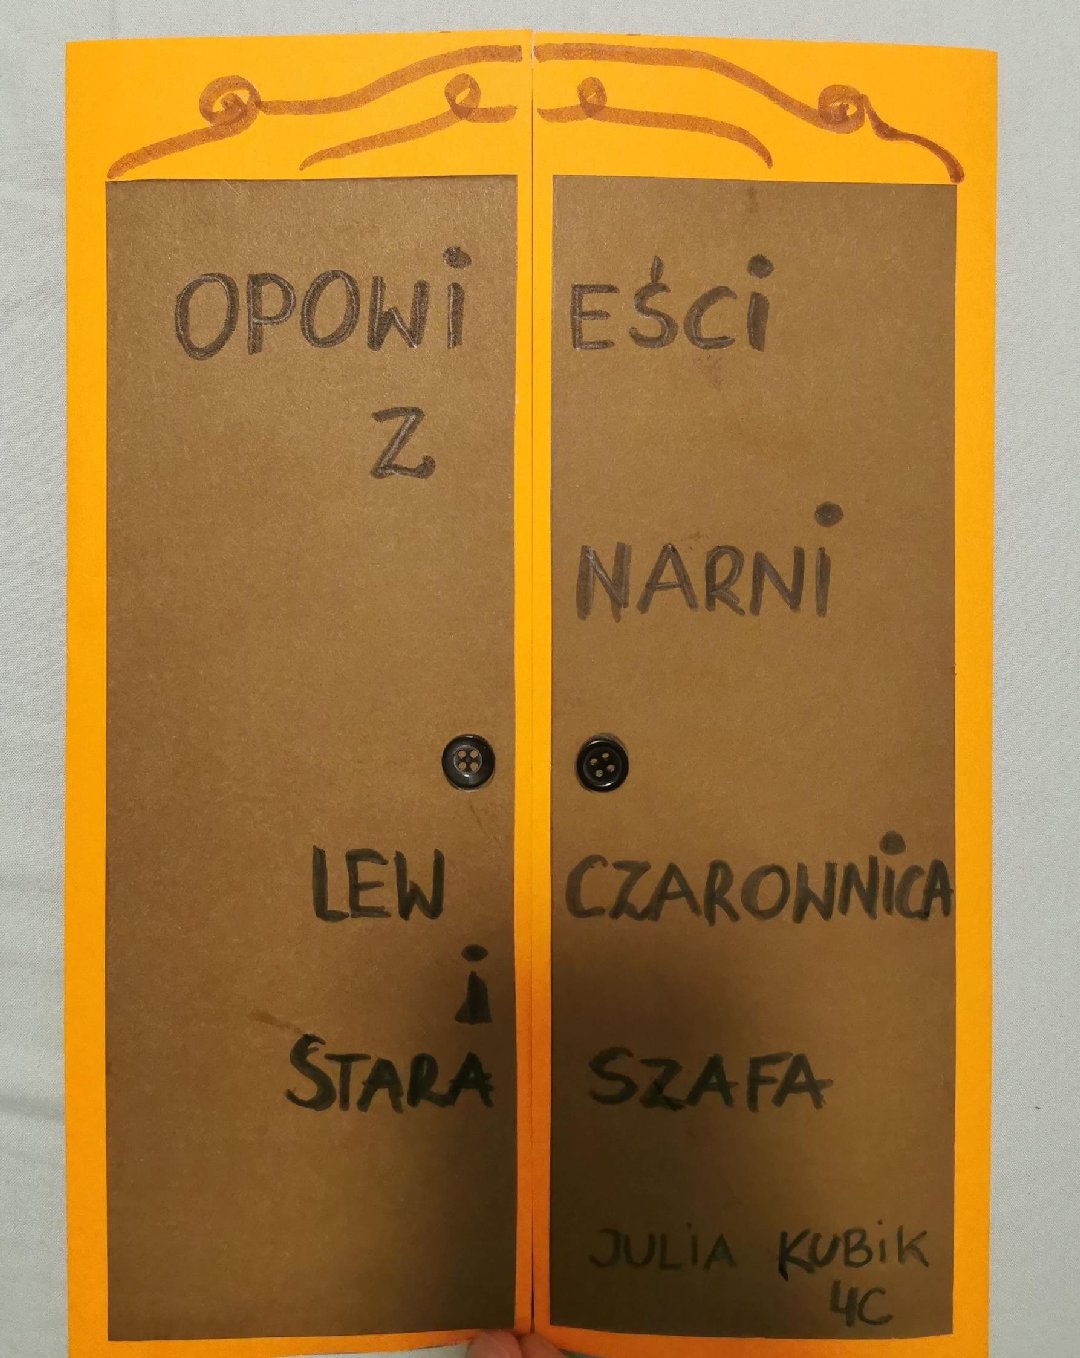 OPOWiEŚCi
Z
NARNi
LEW CZAROWNiCA
i
STARA SZAFA
JULiA KUBiK
4C